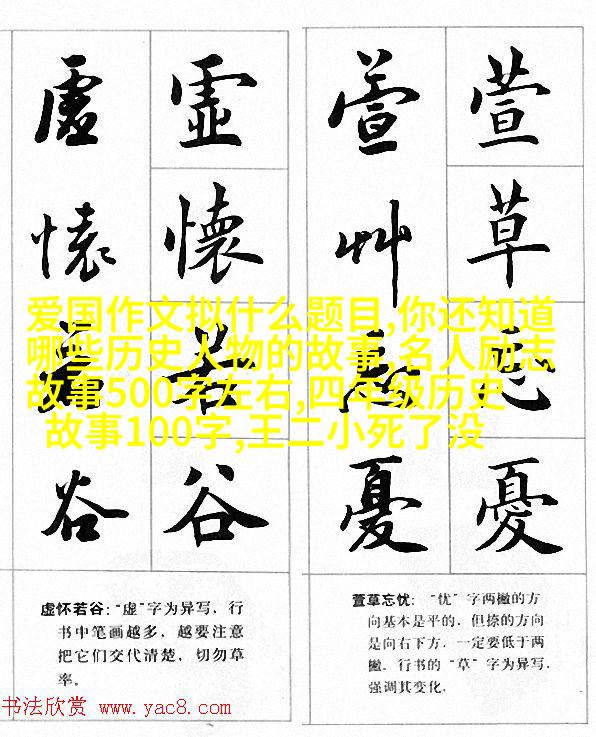 虛 虛 萱 萱
懷 懷 艸 草
若 若 忘 忘
谷 谷 憂 憂
爱国作文拟什么题目,你还知道
哪些历史人物的故事,名人励志
故事500字左右,四年级历史
故事100字,王二小死了没
虚怀若谷:“虚”字为异写,行
书中笔画越多,越要注意
把它们交代清楚,切勿草
率。
萱草忘忧:“忧”字两撇的方
向基本是平的,但捺的方向
是向右下方,一定要低于两
撇。行书的“草”字为异写,
强调其变化。
书法欣赏 www.yac8.com